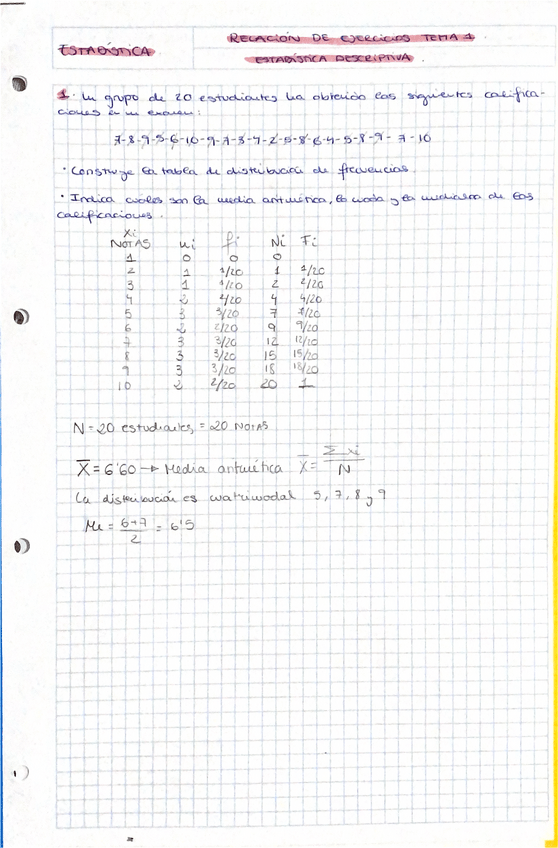 ESTADÍSTICA
RELACIÓN DE EJERCICIOS TEMA 1.
ESTADÍSTICA DESCRIPTIVA.
1. Un grupo de 20 estudiantes ha obtenido las siguientes califica-
ciones en un examen:
7-8-9-5-6-10-9-7-3-4-2-5-8-6-4-5-8-9-7-10
· Construye la tabla de distribución de frecuencias.
· Indica cuáles son la media aritmética, la moda y la mediana de las
calificaciones.
Xi
NOTAS ni fi Ni Fi
1 0 0 0
2 1 1/20 1 1/20
3 1 1/20 2 2/20
4 2 2/20 4 4/20
5 3 3/20 7 7/20
6 2 2/20 9 9/20
7 3 3/20 12 12/20
8 3 3/20 15 15/20
9 3 3/20 18 18/20
10 2 2/20 20 1
N = 20 estudiantes = 20 NOTAS
X = 6'60 → Media aritmética X = Σ xi / N
La distribución es cuatrimodal 5, 7, 8 y 9
Me = 6+7 / 2 = 6'5